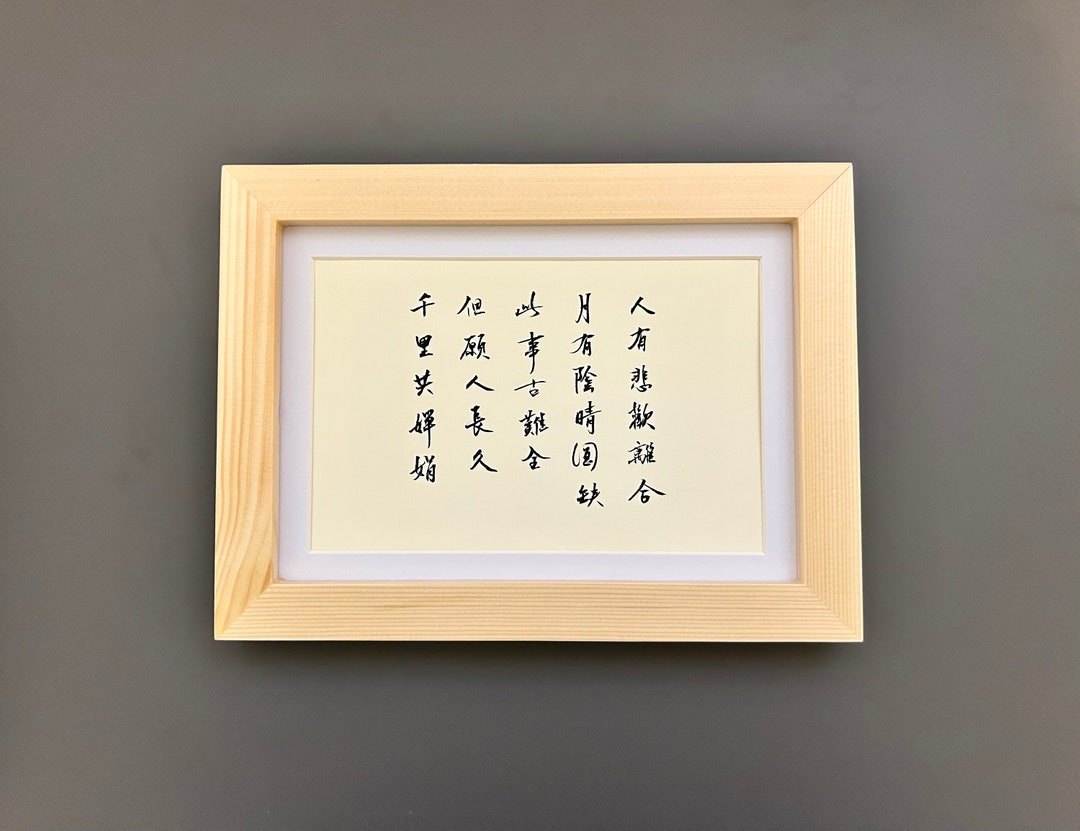 人有悲歡離合
月有陰晴圓缺
此事古難全
但願人長久
千里共嬋娟